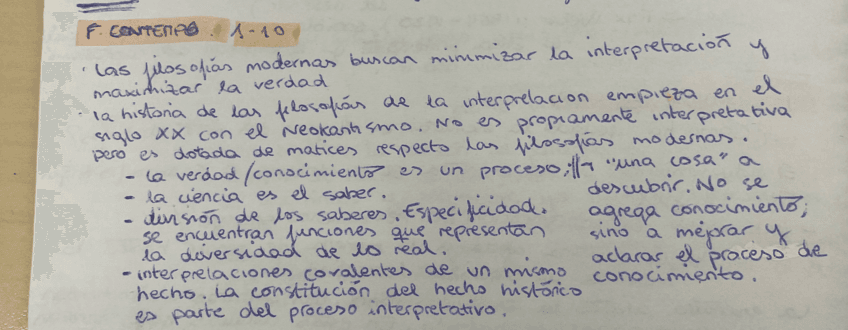 F. CONTEMPO. 1-10
· Las filosofías modernas buscan minimizar la interpretación y
maximizar la verdad
· La historia de las filosofías de la interpretación empieza en el
siglo XX con el Neokantismo. No es propiamente interpretativa
pero es dotada de matices respecto las filosofías modernas.
- la verdad/conocimiento es un proceso, "una cosa" a
descubrir. No se
agrega conocimiento;
sino a mejorar y
aclarar el proceso de
conocimiento.
- la ciencia es el saber.
- división de los saberes. Especificidad.
se encuentran funciones que representan
la diversidad de lo real.
- interpretaciones covalentes de un mismo
hecho. La constitución del hecho histórico
es parte del proceso interpretativo.